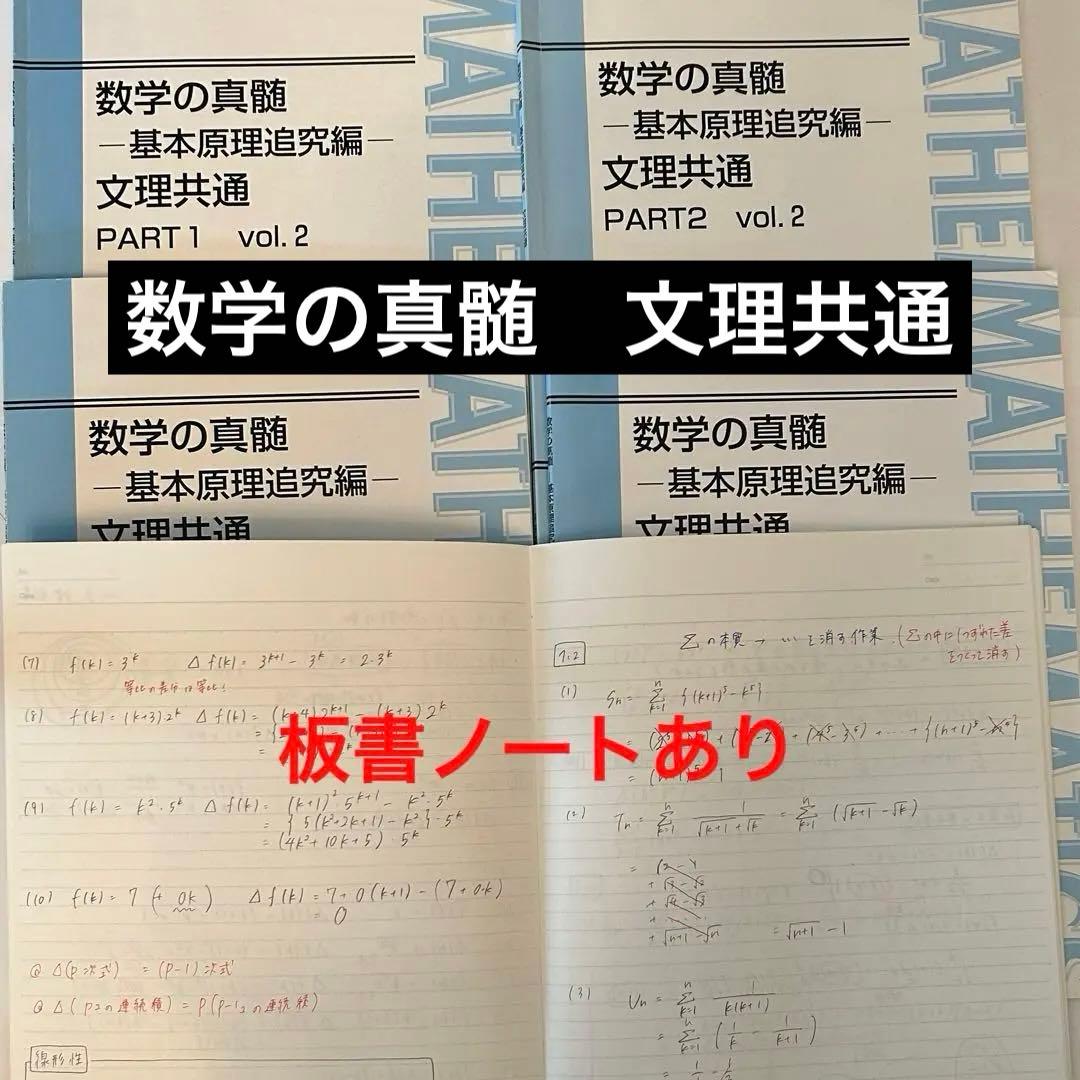 数学の真髄
―基本原理追究編―
文理共通
PART1 vol.2
MATHEMATICS
数学の真髄
―基本原理追究編―
文理共通
PART2 vol.2
MATHE
数学の真髄 文理共通
数学の真髄
―基本原理追究編―
文理共通
数学の真髄
―基本原理追究編―
文理共通
板書ノートあり
(7) f(k) = 3^k Δf(k) = 3^{k+1} - 3^k = 2・3^k
等比の差分は等比!
(8) f(k) = (k+3)2^k Δf(k) = (k+4)2^{k+1} - (k+3)2^k
(9) f(k) = k^2・5^k Δf(k) = (k+1)^2・5^{k+1} - k^2・5^k
= {5(k^2+2k+1) - k^2}・5^k
= (4k^2+10k+5)・5^k
(10) f(k) = 7 (+ 0k) Δf(k) = 7+0(k+1) - (7+0・k)
= 0
Δ(p次式) = (p-1)次式
Δ(pコの連続積) = p(p-1コの連続積)
線形性
Σの本質 → …を消す作業.(Σの中に1つずれた差
をつくって消す)
1.2
(1) Sn = Σ_{k=1}^{n} {(k+1)^5 - k^5}
+ … + {(n+1)^5 - n^5}
(2) Tn = Σ_{k=1}^{n} 1/(√(k+1)+√k) = Σ_{k=1}^{n} (√(k+1) - √k)
+ √3 - √2
+ √4 - √3
+ …
+ √(n+1) - √n = √(n+1) - 1
(3) Un = Σ_{k=1}^{n} 1/(k(k+1))
= Σ_{k=1}^{n} (1/k - 1/(k+1))